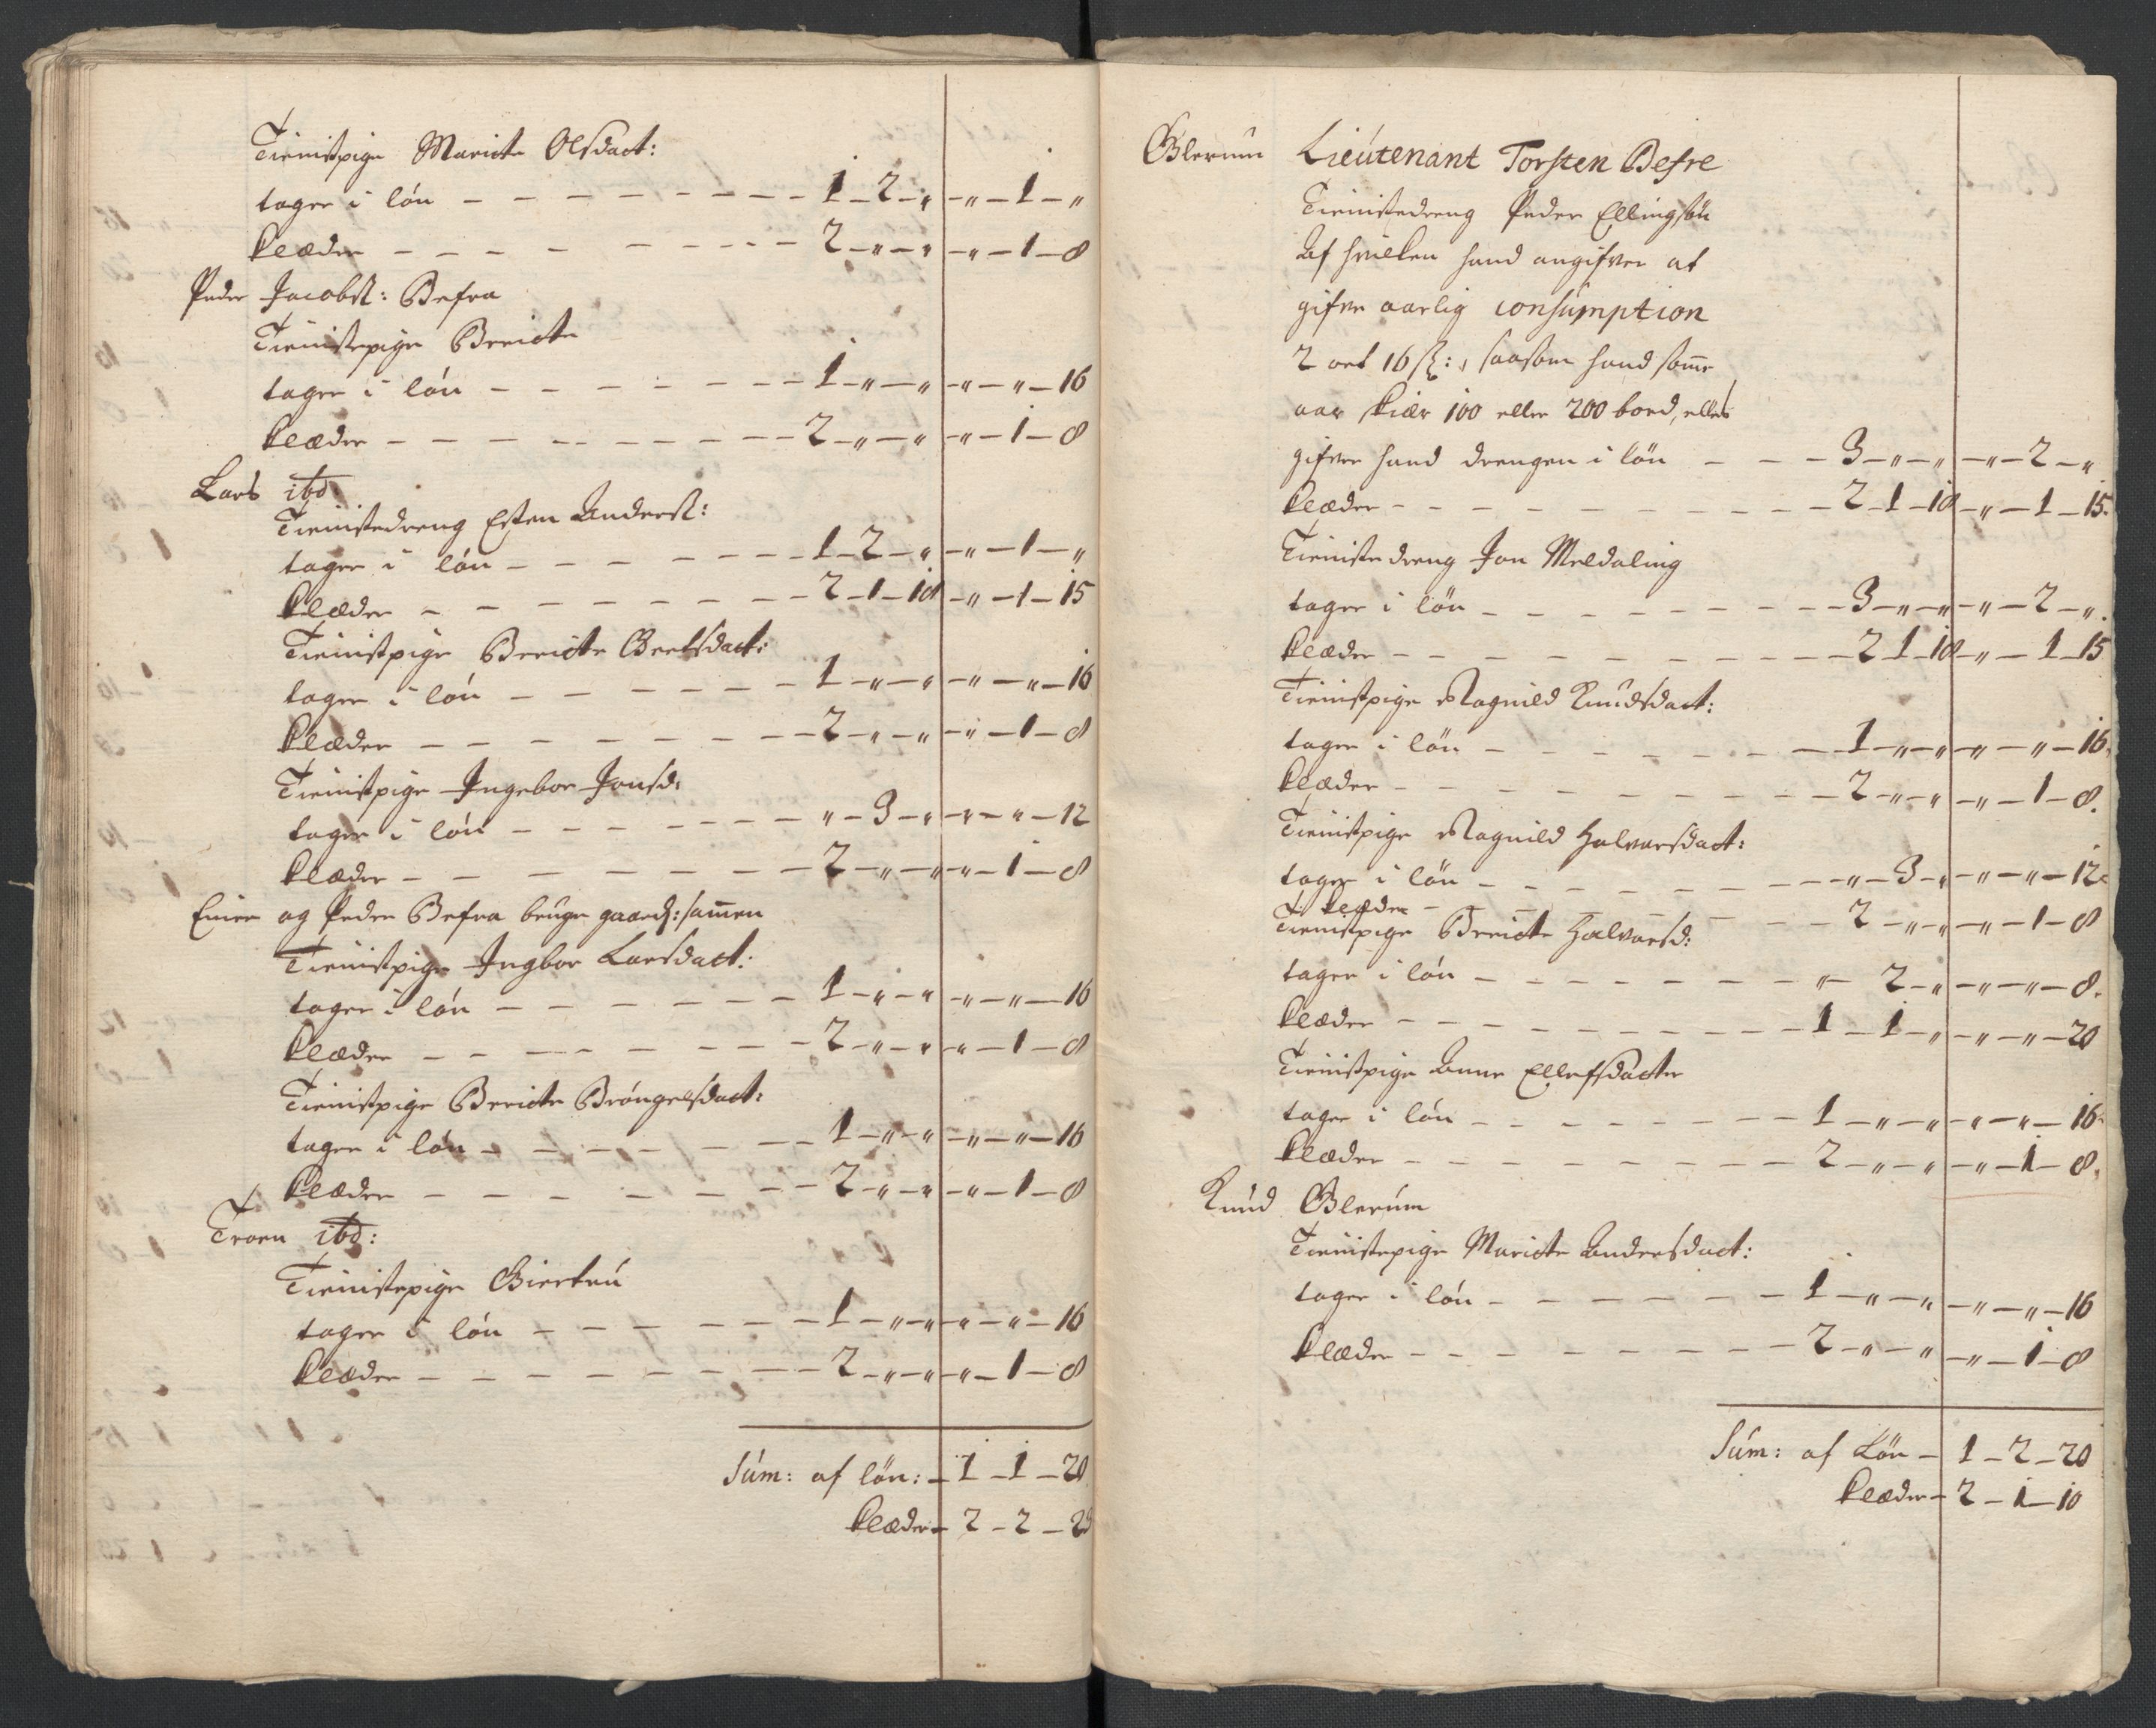 Tienistpige Marite Olsdact:
tager i lón – – – – – – – 1 – 2 – „ – „ – 1 – „
klæder – – – – – – – – 2 – „ – „ – „ – 1 – 8
Peder Jacobs: Besra
Tienistepige Breite
tager i lón – – – – – – – 1 – „ – „ – „ – „ – 16
klæder – – – – – – – – 2 – „ – „ – „ – 1 – 8
Lars ibd
Tienistedreng Esten Anders:
tager i lón – – – – – – 1 – 2 – „ – „ – 1 – „
klæder – – – – – – – 2 – 1 – 18 – „ – 1 – 15
Tienistpige Breite
tager i lón – – – – – – 1 – „ – „ – „ – „ – 16
klæder – – – – – – – – 2 – „ – „ – „ – 1 – 8
Tienistpige Ingebor Jonsd:
tager i lón – – – – – – – „ – 3 – „ – „ – „ – 12
klæder – – – – – – – – 2 – „ – „ – „ – 1 – 8
og Peder Besra bruger gaard: sammen
Tienistpige Ingbor Larsdact:
tager i lón – – – – – – 1 – „ – „ – „ – „ – 16
klæder – – – – – – – – 2 – „ – „ – „ – 1 – 8
Tienistpige Breite Bróngelsdact:
tager i lón – – – – – – – 1 – „ – „ – „ – „ – 16
klæder – – – – – – – 2 – „ – „ – „ – 1 – 8
Troen ibd:
Tienistepige Giertru
tager i lón – – – – – – 1 – „ – „ – „ – „ – 16
klæder – – – – – – – – 2 – „ – „ – „ – 1 – 8
Súm: af lön: – 1 – 1 – 20
klæder – 2 – 2 –
Blerum Lieútenant Torsten Besre
Tienistedreng Peder Ellingsön
Af hvilken hand angifver at
gifve aarlig consúmption
2 ort 16 s: saasom hand somme
aar skiær 100 eller 200 bord, ellers
gifver hand drengen i lön – – – 3 – „ – „ – „ – 2 – „
klæder – – – – – – – – 2 – 1 – 18 – „ – 1 – 15.
Tieniste dreng Jon Meldaling
tager i lön – – – – – – – – 3 – „ – „ – „ – 2 – „.
klæder – – – – – – – – – 2 1 – 18 – „ – 1 – 15
Tienistpige Ragnild Knudsdact:
tager i lön – – – – – – – 1 – „ – „ – „ – „ – 16.
klæder – – – – – – – – – 2 – „ – „ – „ – 1 – 8.
Tienistpige Ragnild Halvorsdact:
tager i lön – – – – – – – – „ – 3 – „ – „ – „ – 12
klæder – – – – – – – 2 – „ – „ – „ – 1 – 8
Tienistpige Breite Halvorsd:
tager i lón – – – – – – – „ – 2 – „ – „ – „ – 8.
klæder – – – – – – – – – 1 – 1 – „ – „ – „ – 20
Tienistpige Anne Ellefsdacter
tager i lón – – – – – – – 1 – „ – „ – „ – „ – 16.
klæder – – – – – – – – 2 – „ – „ – „ – 1 – 8.
Knud Blerúm
Tienistepige Marite Andersdact:
tager i lón – – – – – – – 1 – „ – „ – „ – „ – 16
klæder – – – – – – – – 2 – „ – „ – „ – 1 – 8
Súm: af Lön – 1 – 2 – 20
klæder – 2 – 1 – 10